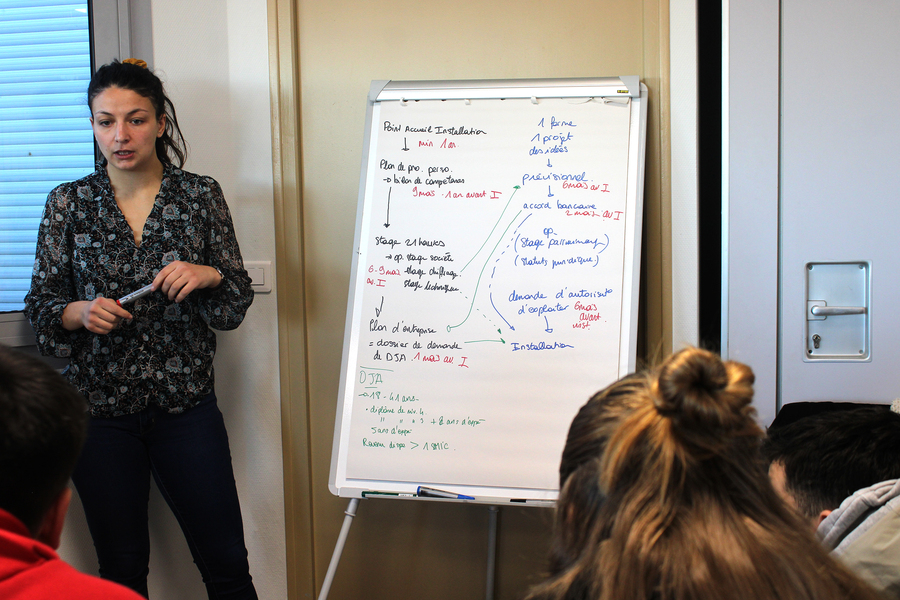 Point Accueil Installation
min 1 an
Plan de pro. perso.
→ bilan de compétences
9 mois - 1 an avant I
Stage 21 heures
→ op. stage société
6-9 mois - stage chiffrage
av. I stage technique
Plan d'entreprise
= dossier de demande
de DJA 1 mois av I
DJA
→ 18 - 41 ans
• diplôme de niv. 4
5 ans d'expé
Revenu dispo > 1 SMIC
1 ferme
1 projet
des idées
prévisionnel
6 mois av I
accord bancaire
2 mois av I
op.
(stage parrainage)
(statuts juridique)
demande d'autorisat°
d'exploiter 6 mois
avant
inst.
Installation